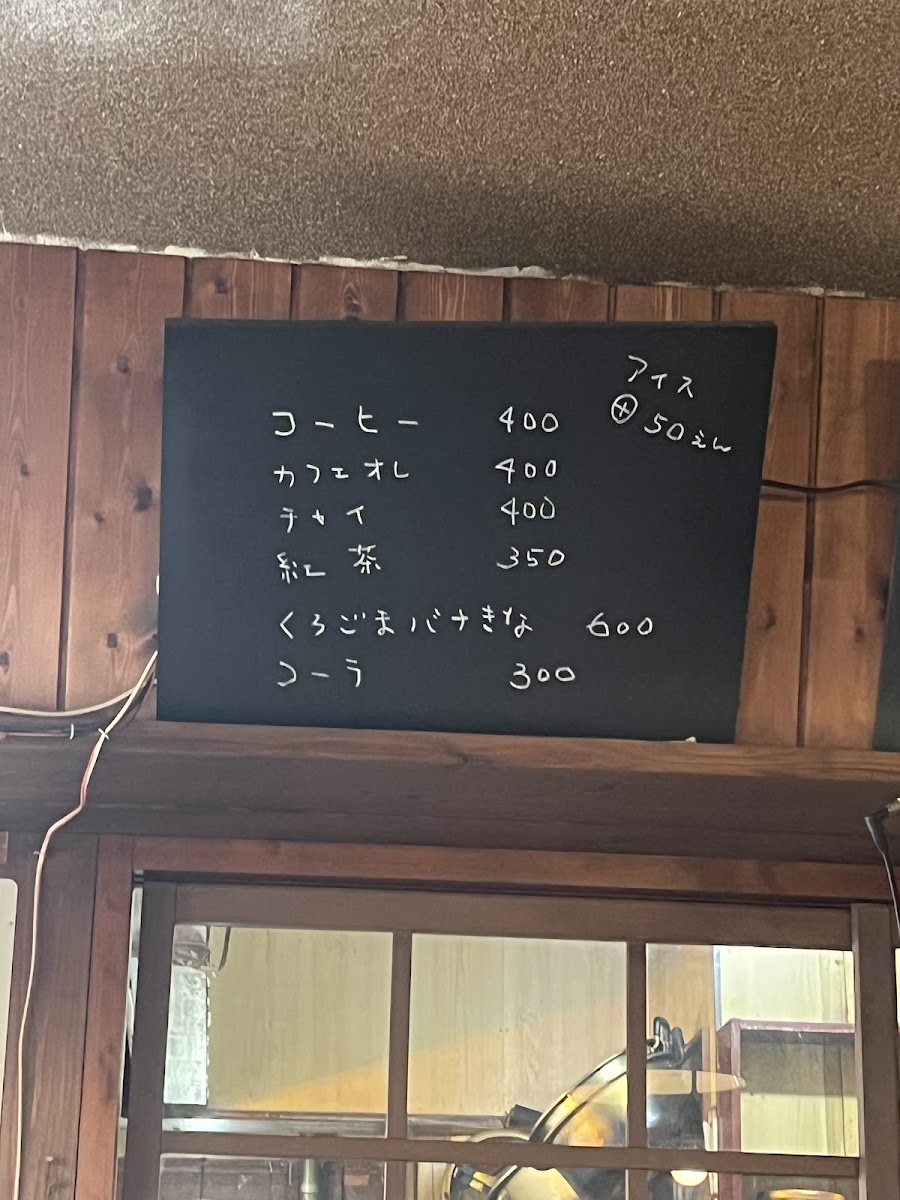 アイス
⊕50えん
コーヒー 400
カフェオレ 400
チャイ 400
紅茶 350
くろごまバナきな 600
コーラ 300